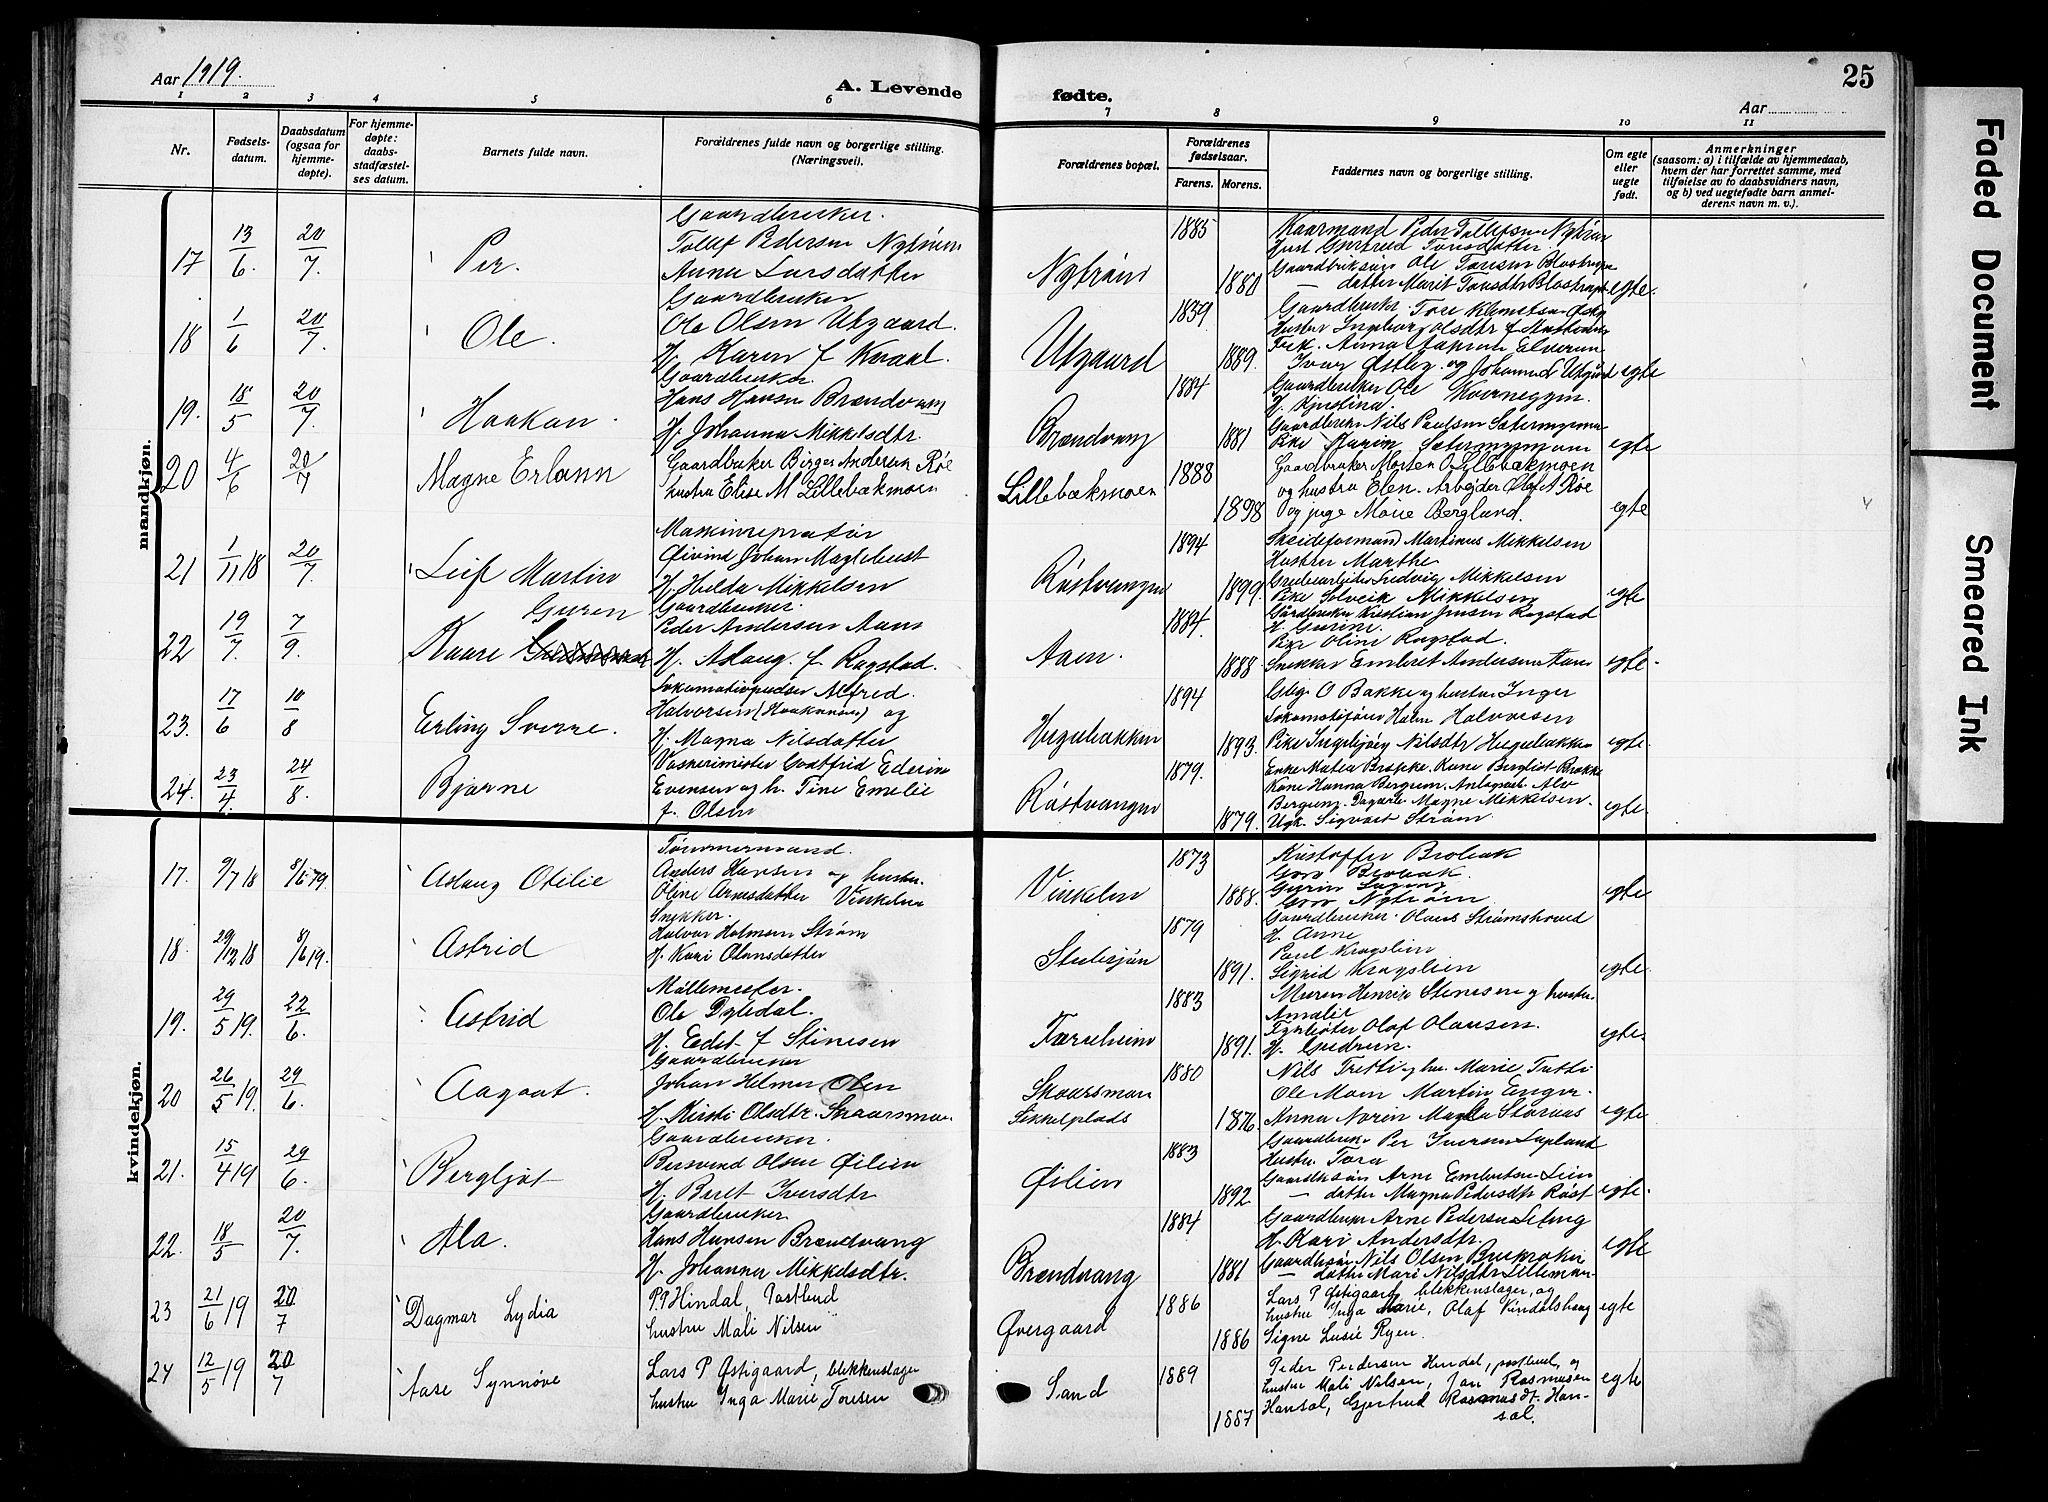 Aar 1919.
A. Levende
fødte.
25
Aar
1 2 3 4 5 6 7 8 9 10 11
Nr.
Fødsels-
datum.
Daabsdatum
(ogsaa for
hjemme-
døpte).
For hjemme-
døpte:
daabs-
stadfæstel-
ses datum.
Barnets fulde navn.
Forældrenes fulde navn og borgerlige stilling.
(Næringsvei).
Forældrenes bopæl.
Forældrenes
fødselsaar.
Farens. Morens.
Faddernes navn og borgerlige stilling.
Om egte
eller
uegte
født.
Anmerkninger
(saasom: a) i tilfælde av hjemmedaab,
hvem der har forrettet samme, med
tilføielse av to daabsvidners navn,
og b) ved uegtefødte barn anmel-
derens navn m. v.).
mandkjøn.
17 13/6. 20/7. Per.
Gaardbruker.
Tollef Pedersen Nytrøen
Anna Larsdatter
Nytrøen 1885 1880
Kaarmand Peder Tollefsen Nytrøen
Hust Gjertrud Tonsdatter.
Gaardbruksøn Ole Tonsen
datter Marit Tonsdtr
egte.
18 1/6 20/7. Ole.
Gaardbruker
Ole Olsen Utgaard.
H. Karen f Kvaal.
Utgaard 1859 1889.
Gaardbruker. Tore
Hustru Ingeborg Olsdtr f
Frk. Anna Elverum
Ivar Østby og Johannes Utgård
egte
19. 18/5 20/7. Haakon.
Gaardbruker.
Hans Hansen Brændvang
H. Johanna Mikkelsdtr.
Brændvang 1884 1881
Gaardbruker Ole Kverneggen.
H. Kjerstina.
Gaardbruker Nils Paulsen Sætermyrmo
Pike Karen
egte
20 4/6 20/7 Magne Erlann
Gaardbruker Birger Andersen Røe
hustru Elise M Lillebækmoen
Lillebækmoen 1888 1898
Gaardbruker Morten O Lillebækmoen
og hustru Elen. Arbejder Olaf A Røe
og pige Marie Berglund.
egte
21 1/11 18 20/7. Leif Martin
Maskinreparatør
Øivind Johan Maglehust
H. Hilda Mikkelsen
Røstvangen 1894 1899.
Skeideformand Martinus Mikkelsen
Hustru Marthe
Grubearbeider Ludvig Mikkelsen
Pike Solveik Mikkelsen
egte
22 19/7. 7/9. Kaare Guren
Gaardbruker.
Peder Andersen Aaen
H. Aslaug f. Rogstad.
Aaen. 1884. 1888
Gårdbruker Kristian Jensen Rogstad
H. Gurine.
Pike Oline Rogstad.
Snekker Embret Andersen Aaen
egte.
23. 17/6 10/8 Erling Sverre.
Lokomotivpudser Alfred.
Halvorsen (Haakensen) og
H. Magna Nilsdatter
Hegebakken 1894 1893.
Gbg. O Bakke og hustru Inger
Lokomotifører Halvorsen
Pike Ingebjørg Nilsdtr Hegebakken
egte.
24. 23/4. 24/8. Bjarne
Vaskerimester Godtfrid Ederin
Evensen og h. Tine Emelie
f. Olsen
Røstvangen 1879. 1879.
Enke Matea Brække. Kone Bergliot Brække
Kone Hanna Bergum. Anlagsarb. Alv
Bergum. Dagarb. Magne Mikkelsen.
Ugk. Sigvart Strøm.
egte.
kvindekjøn.
17. 9/7 18 8/6 19. Aslaug Otilie
Tømmermand.
Anders Hansen og hustru.
Oline Arnesdatter Vinkelen
Vinkelen 1873 1888.
Kristoffer Brobak
Goro Brobak.
Guren
Goro Nytrøen
egte
18. 29/12 18 8/6 19. Astrid
Snekker.
Halvor Holmsen Strøm
H. Kari Olansdatter
Stubsjøen 1879 1891.
Gaardbruker. Olaus Strømshoved
H. Anne
Paul Kragslien
Sigrid Kragslien
egte.
19. 29/5 19. 22/6. Astrid
Møllemester.
Ole Dyledal.
H. Eedet f Stinesen
Furuheim 1883 1891.
Murer Henrik Stinesen og hustru.
Amalie
Fyrbøter Olaf Olausen.
H. Gudrun.
egte.
20 26/5 19. 29/6. Aagaat.
Gaardbruker
Johan Helmer Olsen
H. Kirsti Olsdtr. Skaarsmoen
Skaarsmoen
Sikkelplads 1880 1876
Nils Tretti og hu. Marie Tretti
Ole Moen Martin Enger.
Anna Noren Magda Storaas
egte
21. 15/4 19 29/6. Bergljøt
Gaardbruker.
Bersvend Olsen Øilien
H. Beret Iversdtr
Øilien 1883 1892
Gaardbruker Per Iversen Lapland
Hustru Tora
Gaardbrsøn Arne Embretsen Lien
datter Magna Pedersdtr Røst
egte.
22. 18/5 20/7. Ala.
Gaardbruker
Hans Hansen Brændvang
H. Johanna Mikkelsdtr.
Brændvang 1884 1881
Gaardbruker Arne Pedersen
H. Kari Andersdtr.
Gaardbrsøn Nils Olsen
datter Mari Nilsdtr Lillemoen
egte
23 21/6 19 20/7 Dagmar Lydia
P.P Hindal, Postbud
hustru Mali Nilsen
Øvergaard 1886 1886
Lars P Østigaard, blekkenslager, og
hustru Inga Marie, Olaf Vindalshaug
Signe Lusie Ryen.
egte
24 12/5 19 20/7 Aase Synnøve
Lars P Østigaard, blekkenslager
hustru Inga Marie Toresen
Sand 1889 1887
Peder Pedersen Hindal, postbud, og
hustru Mali Nilsen, Jon Rasmusen
Hansal, Gjertrud Rasmusdt. Han-
sal.
egte
Faded Document
Smeared Ink